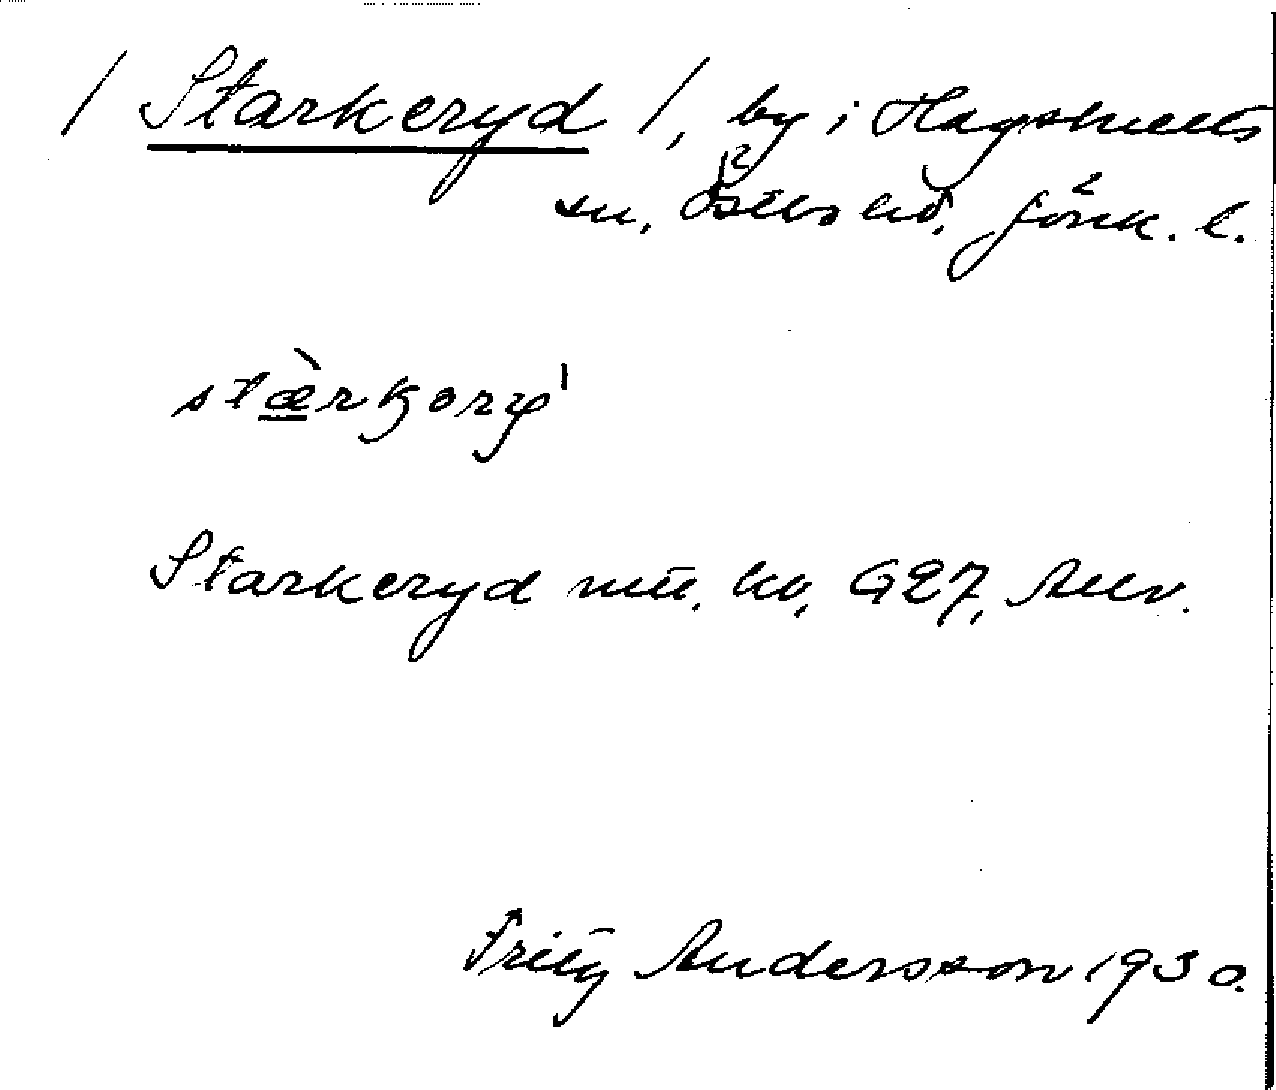 / Starkeryd /, by i Hagshults
sn, Östbo hd, Jönk. l.
stærkory'
Starkeryd mtl. kv, G27,
Fritz Andersson 1930.